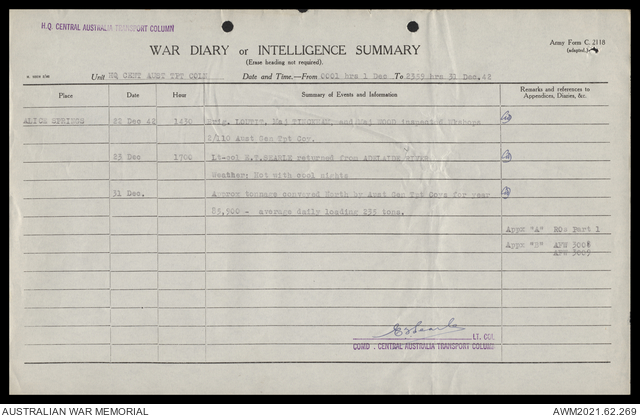 H.Q. CENTRAL AUSTRALIA TRANSPORT COLUMN
Army Form C. 2118
(adapted.)
WAR DIARY or INTELLIGENCE SUMMARY
(Erase heading not required).
Unit HQ CENT AUST TPT COLN Date and Time.—From 0001 hrs 1 Dec To 2359 hrs 31 Dec. 42
Place Date Hour Summary of Events and Information Remarks and references to Appendices, Diaries, &c.
ALICE SPRINGS 22 Dec 42 1430 Brig. Maj and Maj inspected Wkshops
2/110 Aust Gen Tpt Coy.
23 Dec 1700 Lt-Col E.T.SEARLE returned from ADELAIDE
Weather: Hot with cool nights
31 Dec. Approx tonnage conveyed North by Aust Gen Tpt Coys for year
85,500 - average daily loading 235 tons.
Appx "A" ROs Part 1
Appx "B" AFW 3008
AFW 3009
LT. COL
COMD. CENTRAL AUSTRALIA TRANSPORT COLUMN
AUSTRALIAN WAR MEMORIAL
AWM2021.62.269